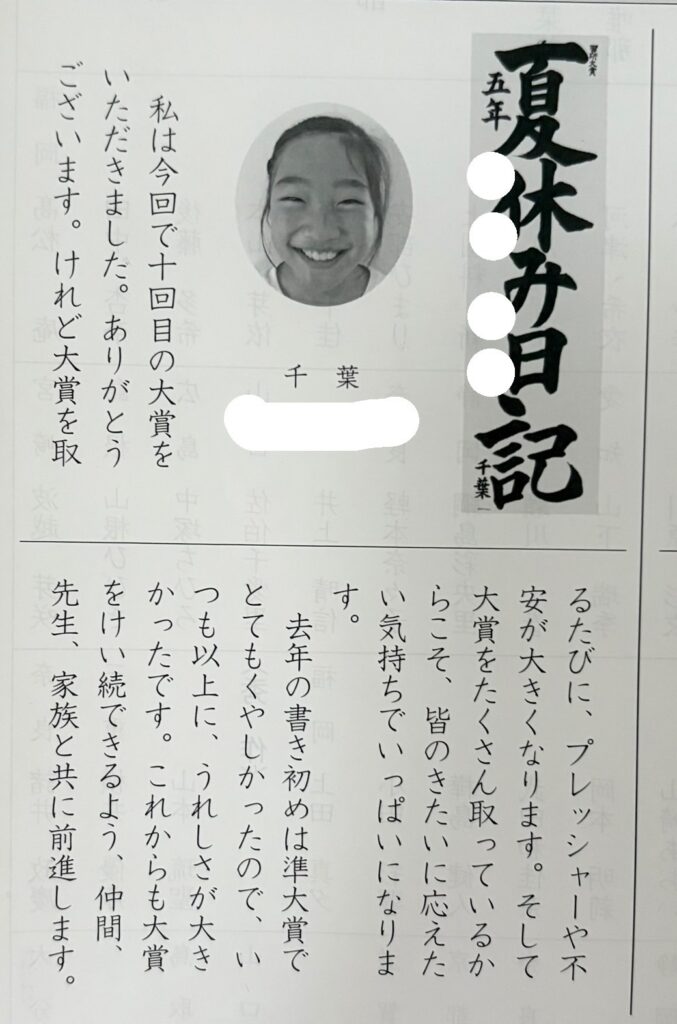 夏休み日記
五年
千葉
千葉
私は今回で十回目の大賞を
いただきました。ありがとう
ございます。けれど大賞を取
るたびに、プレッシャーや不
安が大きくなります。そして
大賞をたくさん取っているか
らこそ、皆のきたいに応えた
い気持ちでいっぱいになりま
す。
去年の書き初めは準大賞で
とてもくやしかったので、い
つも以上に、うれしさが大き
かったです。これからも大賞
をけい続できるよう、仲間、
先生、家族と共に前進します。